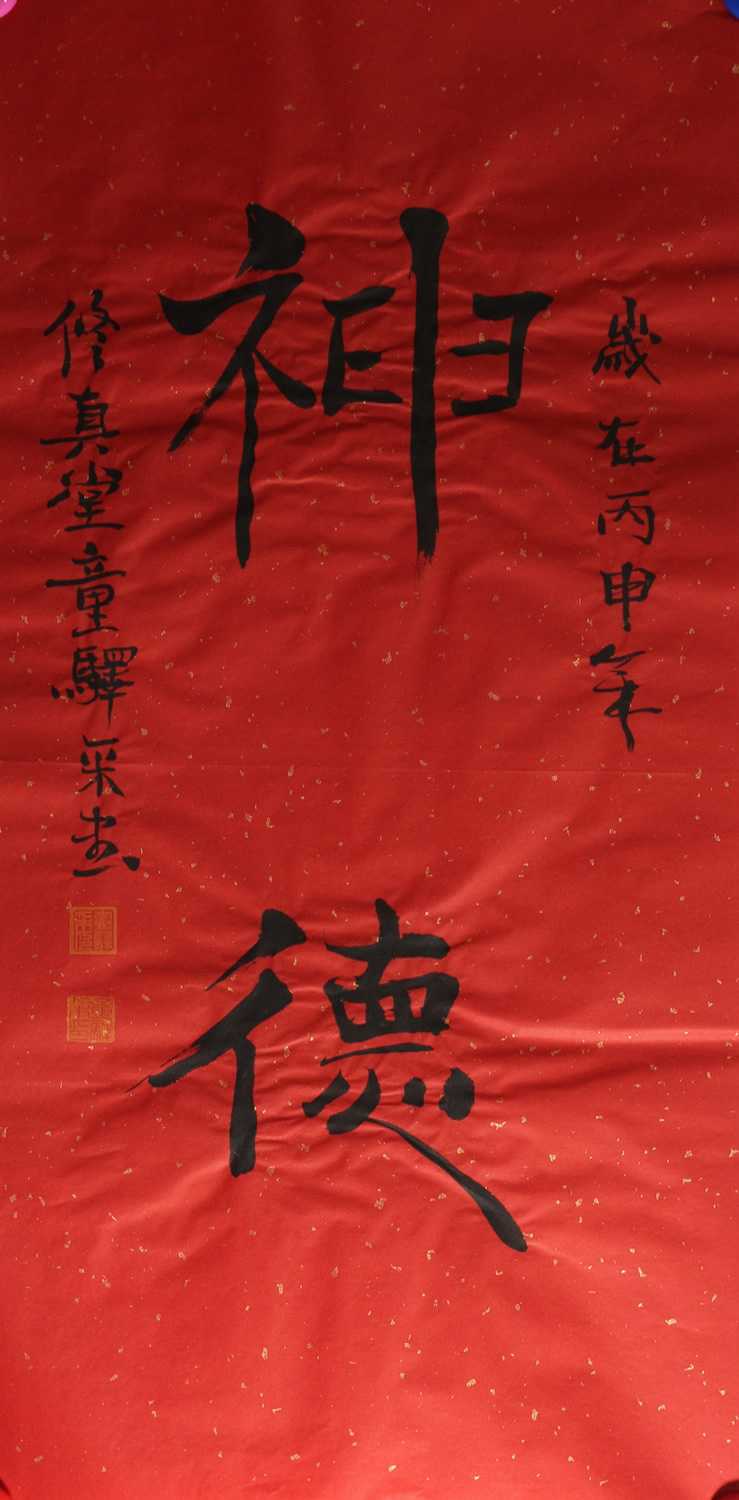 歲在丙申年
神德
修真堂童驛采書